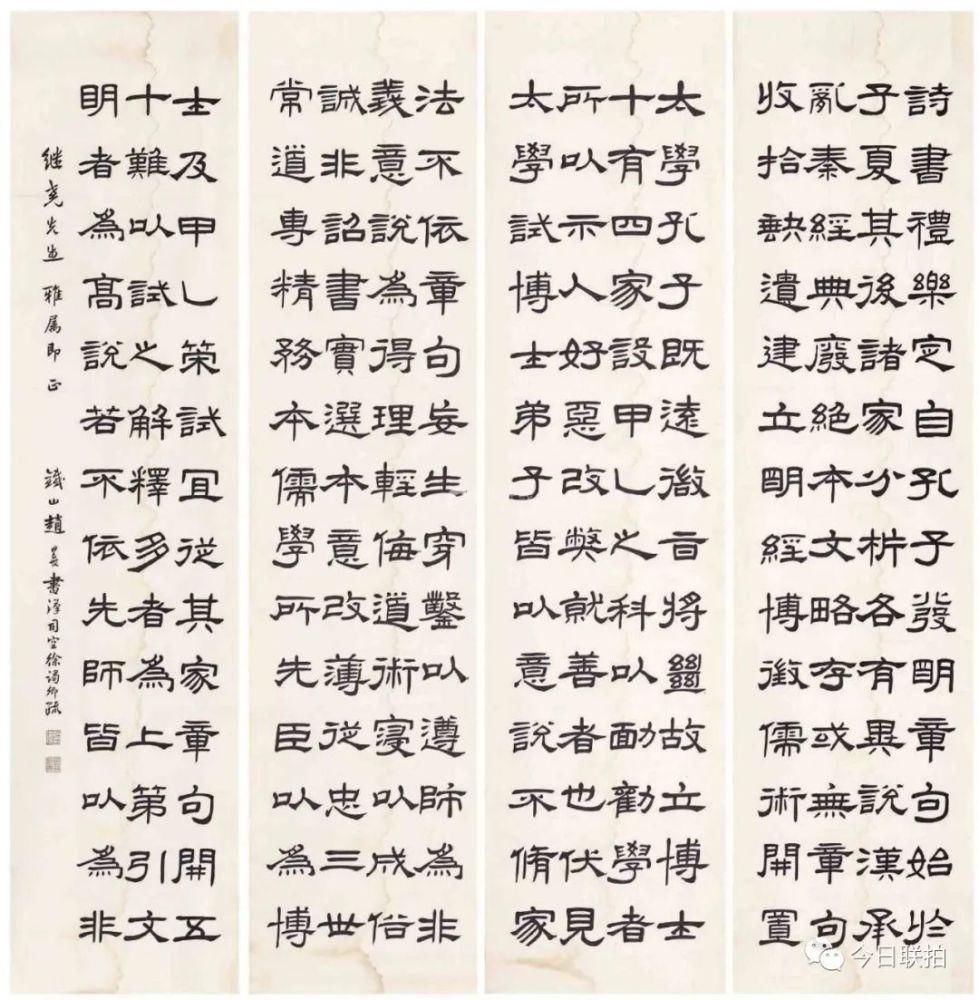 詩書禮樂定自孔子發明章句始於
子夏其後諸家分析各有異說漢承
亂秦經典廢絕本文略存或無章句
收拾缺遺建立明經博徵儒術開置
太學孔子既遠微旨將絕故立博士
十有四家設甲乙之科以勉勸學者
所以示人好惡改弊就善者也伏見
太學試博士弟子皆以意說不脩家
法不依章句妄生穿鑿以遵師為非
義意說為得理輕侮道術寖以成俗
誠非詔書實選本意改薄從忠三世
常道專精務本儒學所先臣以為博
士及甲乙策試宜從其家章句開五
十難以試之解釋多者為上第引文
明者為高說若不依先師皆以為非
继尧先生 雅属即正 鐵山趙書漢司空徐谒卿疏
今日联拍